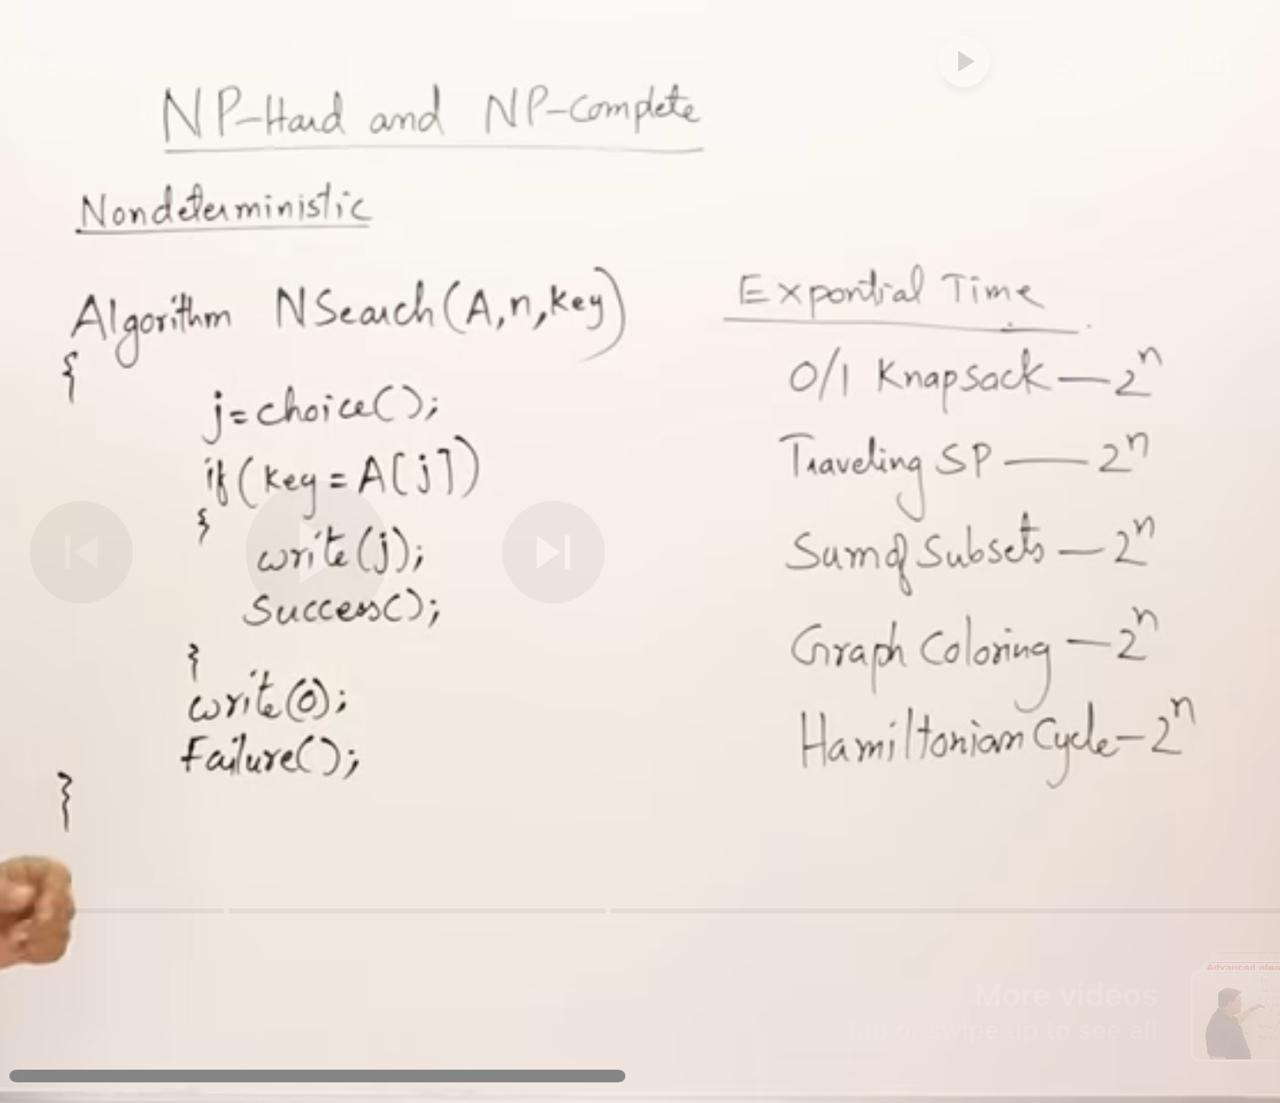 NP-Hard and NP-Complete
Nondeterministic
Algorithm NSearch(A,n,key)
{
j=choice();
if(key=A[j])
{
write(j);
Success();
}
write(0);
Failure();
}
Expontial Time
0/1 Knapsack—2^n
Traveling SP—2^n
Sum of Subsets—2^n
Graph Coloring—2^n
Hamiltonian Cycle—2^n
More videos
Tap or swipe up to see all